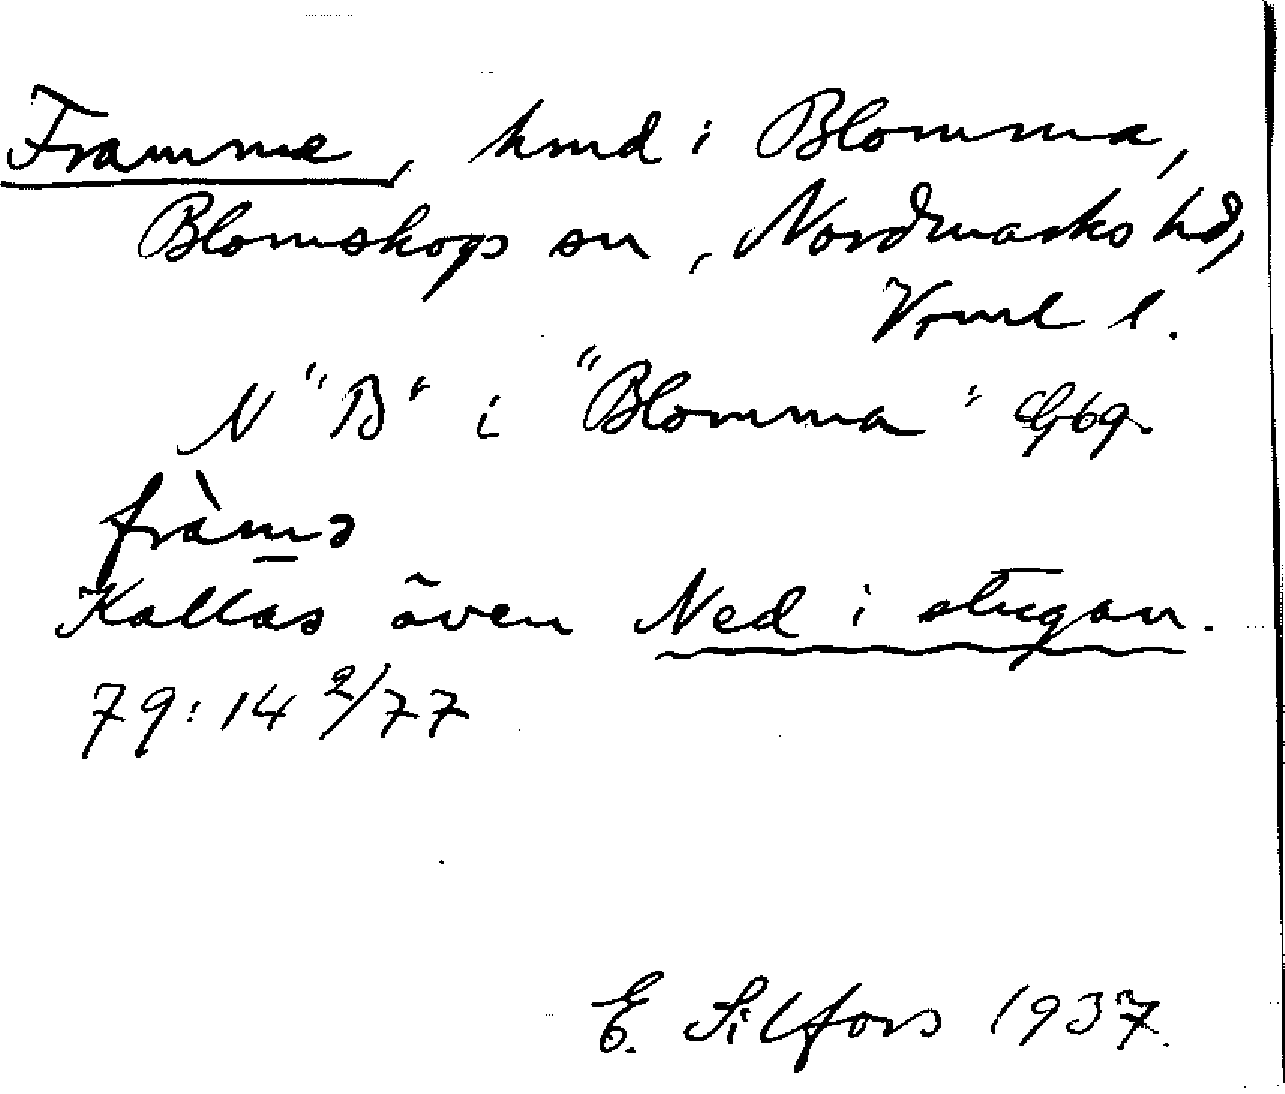 Framme, hmd i Blomma,
Blomskogs sn, Nordmarks hd,
Vrml l.
N "B" i "Blomma" Gj69.
fràmə
Kallas även Ned i stugan.
79:14 2/77
E. Silfors 1937.